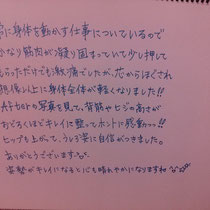 常に身体を動かす仕事についているので
かなり筋肉が凝り固まっていて少し押して
もらっただけでも激痛でしたが、芯からほぐされ
想像以上に身体全体が軽くなりました!!
Afterの写真を見て、背筋やヒジの高さが
おどろくほどキレイに整ってホントに感動っっ!!
ヒップも上がって、うしろ姿に自信がつきました。
ありがとうでございます
姿勢がキレイになると心も晴れやかになりますね